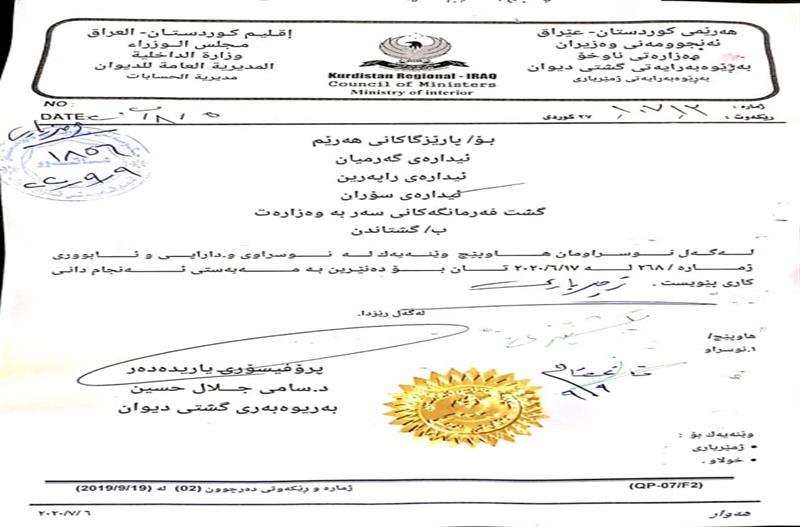 هەرێمی کوردستان- عێراق
ئەنجوومەنی وەزیران
وەزارەتی ناوخۆ
بەڕێوەبەرایەتی گشتی دیوان
بەڕێوەبەرایەتی ژمێریاری
Kurdistan Regional - IRAQ
Council of Ministers
Ministry of interior
إقليم كوردستان- العراق
مجلس الوزراء
وزارة الداخلية
المديرية العامة للديوان
مديرية الحسابات
ژمارە :
ڕێکەوت : ٢٧ کوردی
NO :
DATE:
بۆ/ پارێزگاکانی هەرێم
ئیدارەی گەرمیان
ئیدارەی راپەرین
ئیدارەی سۆران
گشت فەرمانگەکانی سەر بە وەزارەت
ب/ گشتاندن
لەگەل نوسراومان هاوپێچ وێنەیەك لە نوسراوی و.دارایی و ئابووری
ژمارە/ ٢٦٨ لە ٢٠٢٠/٦/١٧ تان بۆ دەنێرین بە مەبەستی ئەنجام دانی
کاری پێویست .
لەگەل رێزدا.
هاوپێچ/
١.نوسراو
پرۆفیسۆری یاریدەدەر
د.سامی جلال حسین
بەریوەبەری گشتی دیوان
وێنەیەك بۆ :
ژمێریاری
خولاو .
(QP-07/F2)
ژمارە و ڕێکەوتی دەرچوون (02) لە (2019/9/19)
هەوار
٢٠٢٠/٧/٦